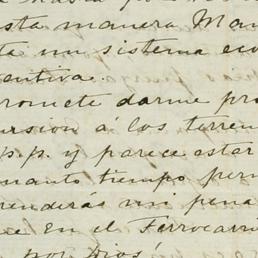 esta manera Man
ta un sistema eco
entiva.
romete darme pro
ursion á los terren
p.p. y parece estar
uanto tiempo perm
renderás mi pena
ue En el Ferrocarri
por Dios!